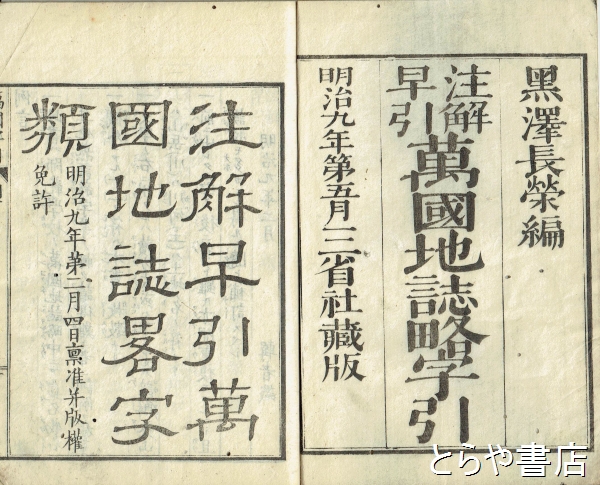 黑澤長榮編
注解
早引
萬國地誌略字引
明治九年第五月三省社藏版
注解早引萬
國地誌畧字
類
明治九年第二月四日禀准并版權
免許
とらや書店